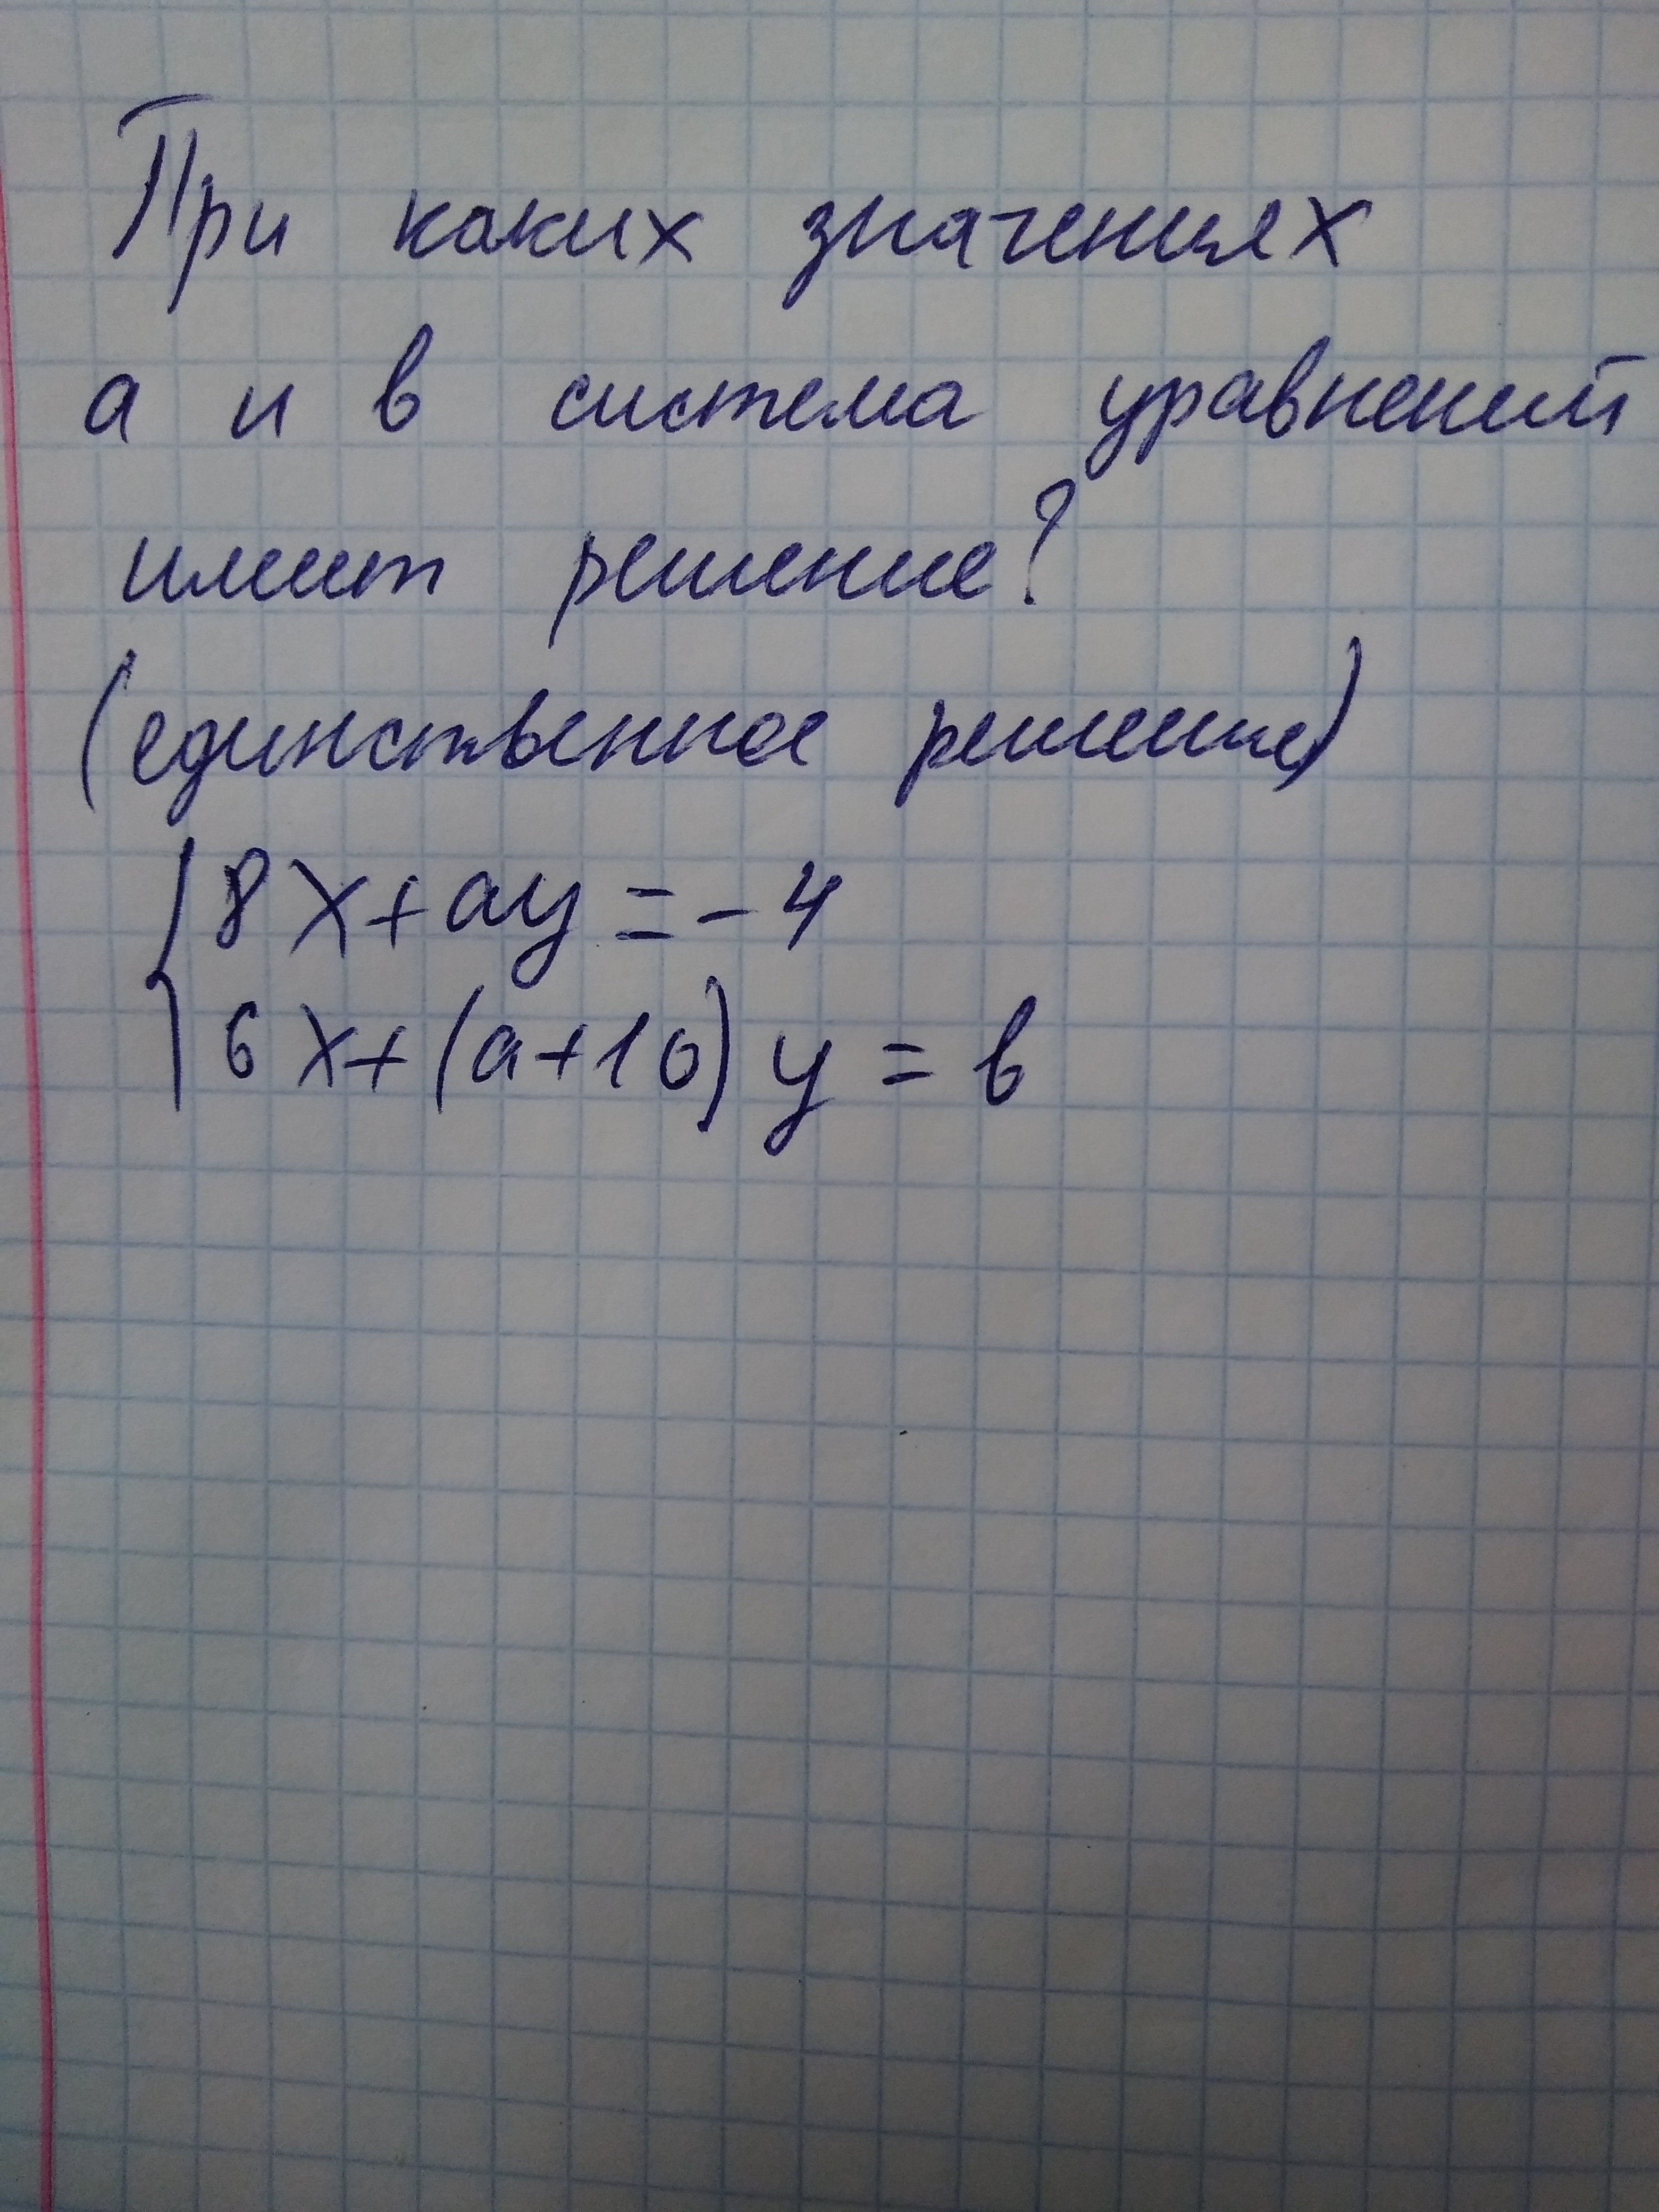 При каких значениях
а и в система уравнений
имеет решение?
(единственное решение)
{ 8x+ay=-4
6x+(a+10)y=b